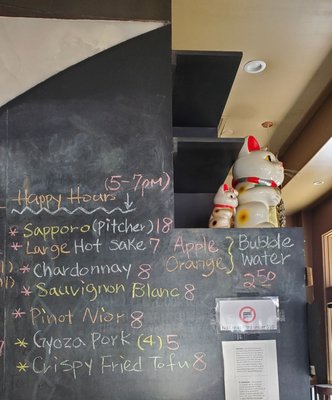 (5-7pm)
Happy Hours
* Sapporo (Pitcher) 18
* Large Hot Sake 7
* Chardonnay 8
* Sauvignon Blanc 8
* Pinot Nior 8
* Gyoza Pork (4) 5
* Crispy Fried Tofu 8
Apple
Orange
Bubble
water
250